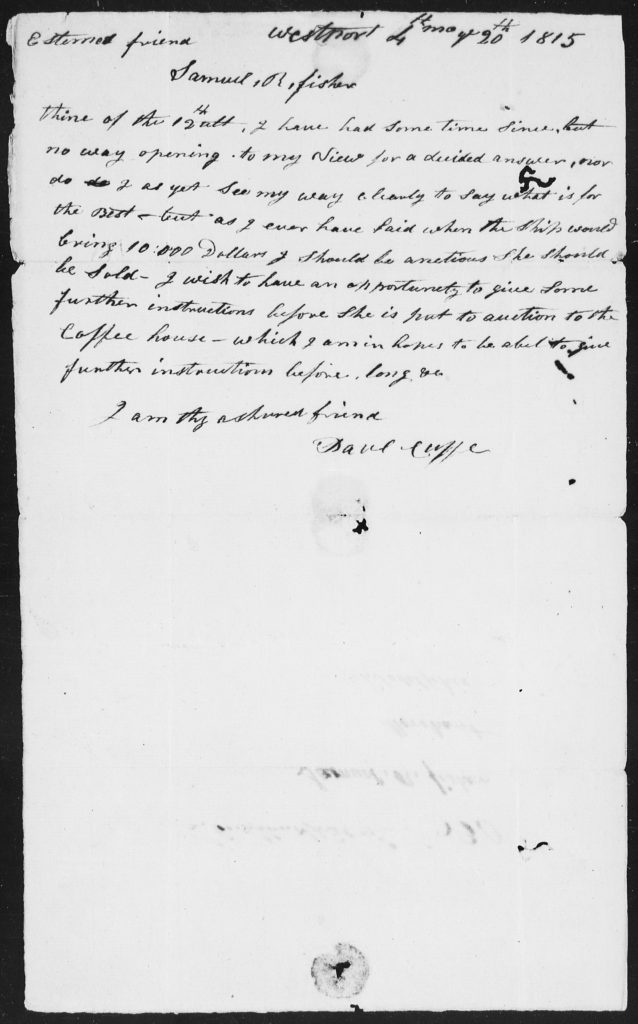 Esteemed friend Westport 4th mo ye 20th 1815
Samuel, R, fisher
thine of the 12th ult, I have had some time Since, but
no way opening to my View for a decided answer, nor
do I as yet See my way clearly to Say what is for
the Best – but as I ever have Said when the Ship would
bring 10.000 Dollars I Should be anctious She Should
be Sold – I wish to have an opportunety to give Some
further instructions before She is put to auction to the
Coffee house – which I am in hopes to be abel to give
further instructions before, long &c
I am thy ashured friend
Paul Cuffe
Samuel. R. fisher